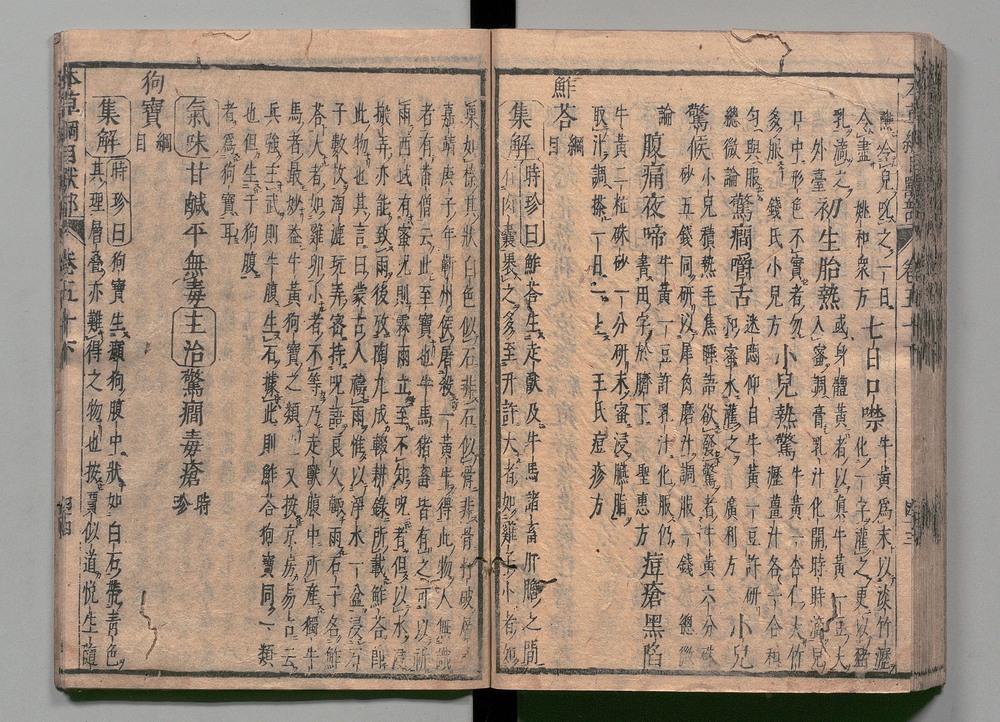 蘸令兒吮之一日
令盡姚和衆方
七日口噤
牛黃爲末以淡竹瀝
化一字灌之更以猪
乳滴之
外臺
初生胎熱
或身體黃者以真牛黃一豆大
入蜜調膏乳汁化開時時滴兒
口中形色不實者勿
多服錢氏小兒方
小兒熱驚
牛黃一杏仁大竹
瀝薑汁各一合和
勻與服
總微論
驚癇嚼舌
迷悶仰目牛黃一豆許研
和蜜水灌之廣利方
小兒
驚候
小兒積熱毛焦睡語欲發驚者牛黃六分硃
砂五錢同研以犀角磨汁調服一錢總微
論
腹痛夜啼
牛黃一豆許乳汁化服仍
書田字於臍下聖惠方
痘瘡黑陷
牛黃二粒硃砂一分研末蜜浸臙脂
取汁調搽一日一上王氏痘疹方
鮓荅綱目
集解時珍曰鮓荅生走獸及牛馬諸畜肝膽之間
有肉囊裹之多至升許大者如雞子小者如
栗如榛其狀白色似石非石似骨非骨打破層疊
嘉靖庚子年蘄州侯屠殺一黃牛得此物人無識
者有番僧云此至寶也牛馬猪畜皆有之可以祈
雨西域有密呪則霖雨立至不知呪者但以水浸
搬弄亦能致雨後攷陶九成輟耕錄所載鮓荅卽
此物也其言曰蒙古人禱雨惟以淨水一盆浸石
子數枚淘漉玩弄密持呪語良久輒雨石子名鮓
荅大者如雞卵小者不等乃走獸腹中所產獨牛
馬者最妙葢牛黃狗寶之類也又按京房易占云
兵強主武則牛腹生石據此則鮓荅狗寶同一類
也但生于狗腹
者爲狗寶耳
氣味甘鹹平無毒主治驚癇毒瘡時珍
狗寶綱目
集解時珍曰狗寶生癩狗腹中狀如白石帶青色
其理層疊亦難得之物也按賈似道悅生隨
本草綱目獸部 卷五十下